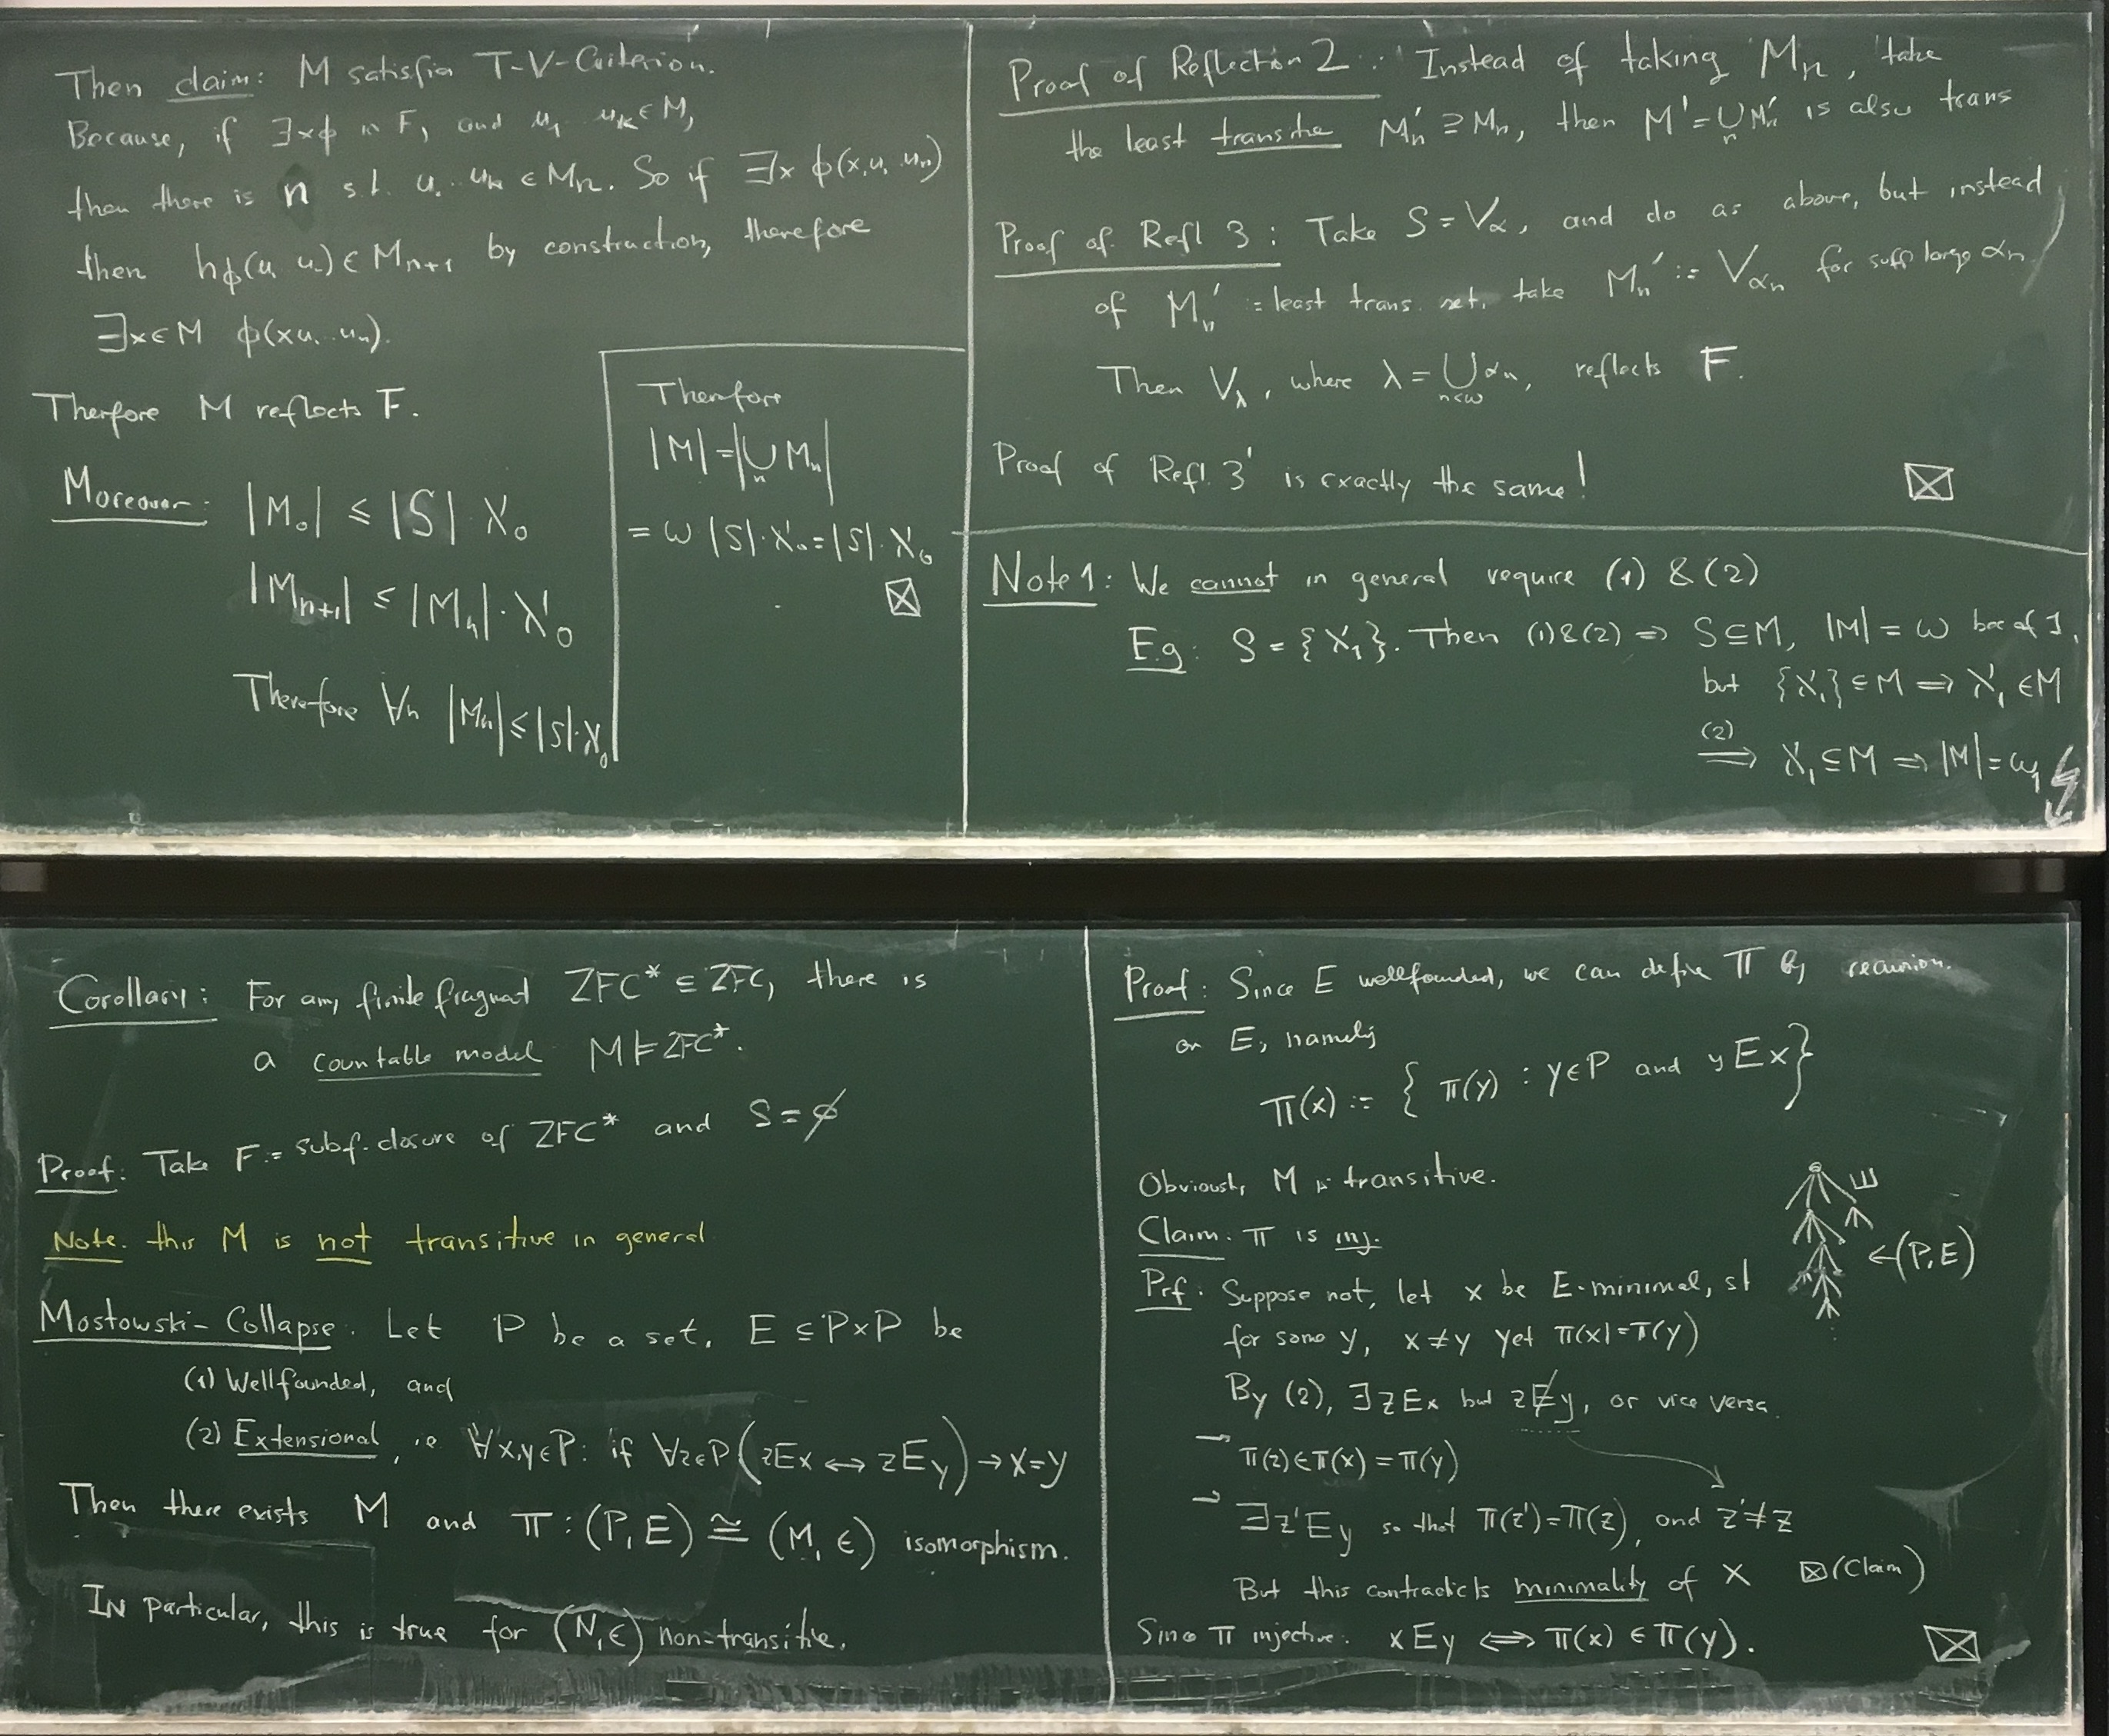 Then claim: M satisfies T-V-Criterion.
Because, if ∃xϕ in F, and u₁ uₖ ∈ M,
then there is n s.t. u₁..uₖ ∈ Mₙ. So if ∃x ϕ(x,u₁..uₙ)
then h_ϕ(u₁ u..) ∈ Mₙ₊₁ by construction, therefore
∃x∈M ϕ(x u₁...uₙ).
Therfore M reflects F.
Moreover: |M₀| ≤ |S|·ℵ₀
|Mₙ₊₁| ≤ |Mₙ|·ℵ₀
Therefore ∀n |Mₙ| ≤ |S|·ℵ₀
Therefore
|M| = |⋃ₙ Mₙ|
= ω |S|·ℵ₀ = |S|·ℵ₀
⊠
Proof of Reflection 2: Instead of taking Mₙ, take
the least transitive Mₙ' ⊇ Mₙ, then M' = ⋃ₙ Mₙ' is also trans
Proof of Refl 3: Take S = V_α, and do as above, but instead
of Mₙ' = least trans. set, take Mₙ' := V_αₙ for suff large αₙ
Then V_λ, where λ = ⋃_{n<ω} αₙ, reflects F.
Proof of Refl. 3' is exactly the same!
⊠
Note 1: We cannot in general require (1) & (2)
E.g: S = {ℵ₁}. Then (1)&(2) ⇒ S ⊆ M, |M| = ω bec of 1,
but {ℵ₁} ∈ M ⇒ ℵ₁ ∈ M
(2)
⇒ ℵ₁ ⊆ M ⇒ |M| = ω₁ ↯
Corollary: For any finite fragment ZFC* ⊆ ZFC, there is
a countable model M ⊨ ZFC*.
Proof: Take F := subf. closure of ZFC* and S = ∅
Note. this M is not transitive in general
Mostowski-Collapse. Let P be a set, E ⊆ P×P be
(1) Wellfounded, and
(2) Extensional, i.e ∀x,y∈P: if ∀z∈P (zEx ↔ zEy) → x=y
Then there exists M and π : (P,E) ≅ (M,∈) isomorphism.
In particular, this is true for (N,∈) non-transitive.
Proof: Since E wellfounded, we can define π by recursion.
on E, namely
π(x) := { π(y) : y∈P and yEx}
Obviously M is transitive.
Claim: π is inj.
E
←(P,E)
Prf: Suppose not, let x be E-minimal, st
for some y, x≠y yet π(x)=π(y)
By (2), ∃zEx but z E̸ y, or vice versa.
→ π(z)∈π(x) = π(y)
→ ∃z'Ey so that π(z')=π(z), and z'≠z
But this contradicts minimality of x ⊠(Claim)
Since π injective: xEy ⟺ π(x) ∈ π(y).
⊠